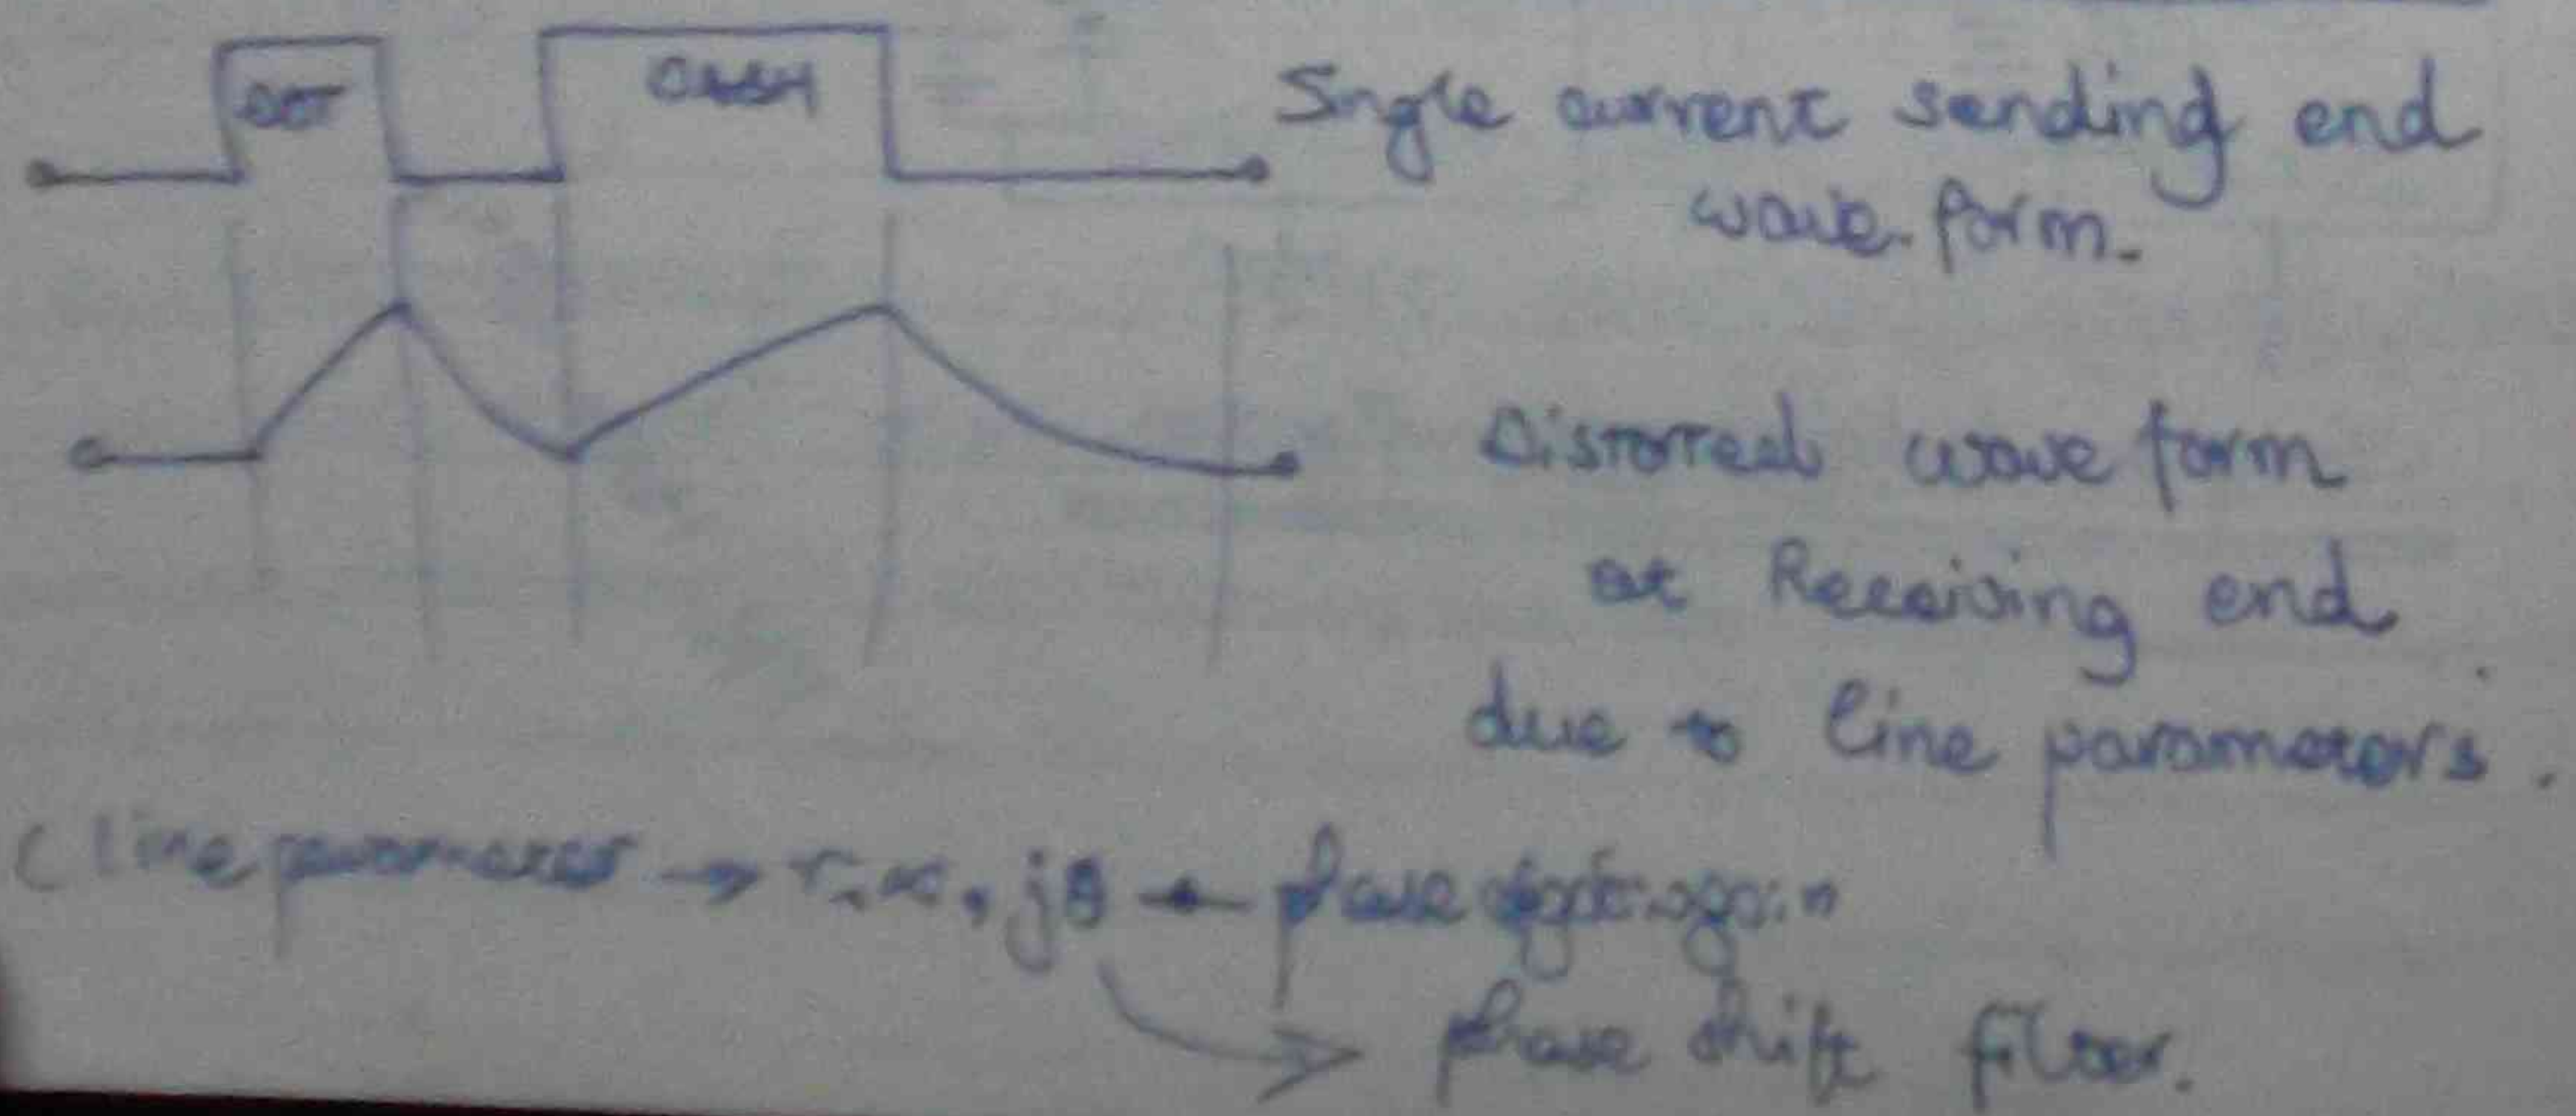 DOT DASH Single current sending end
wave form.
Distorted wave form
at Receiving end
due to line parameters.
(line parameter → r, α, jβ ← phase
phase shift filter.